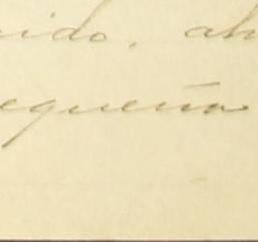 ido, ah
equeña